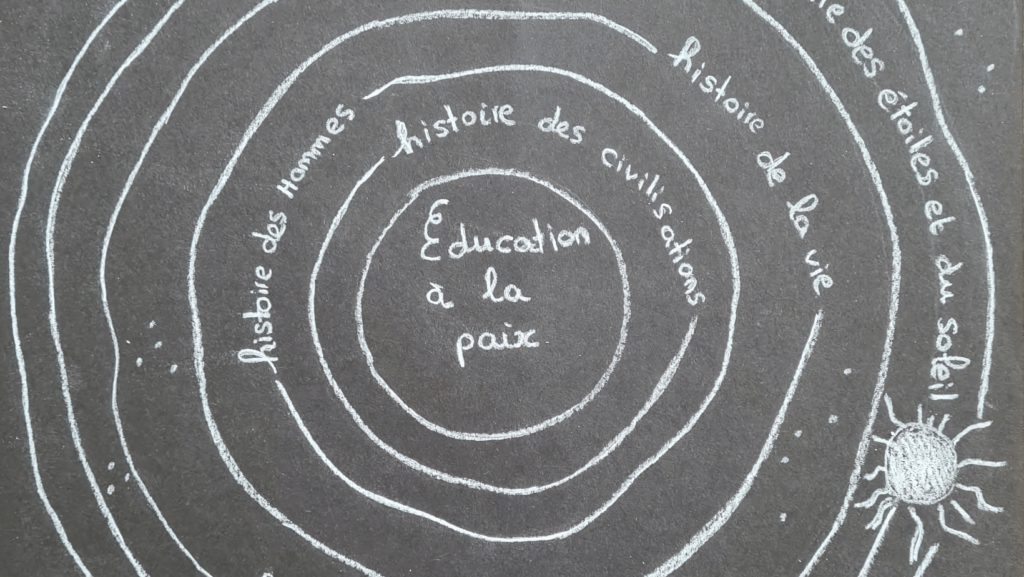 Éducation
à la
paix
histoire des civilisations
histoire des Hommes
histoire de la vie
des étoiles et du soleil